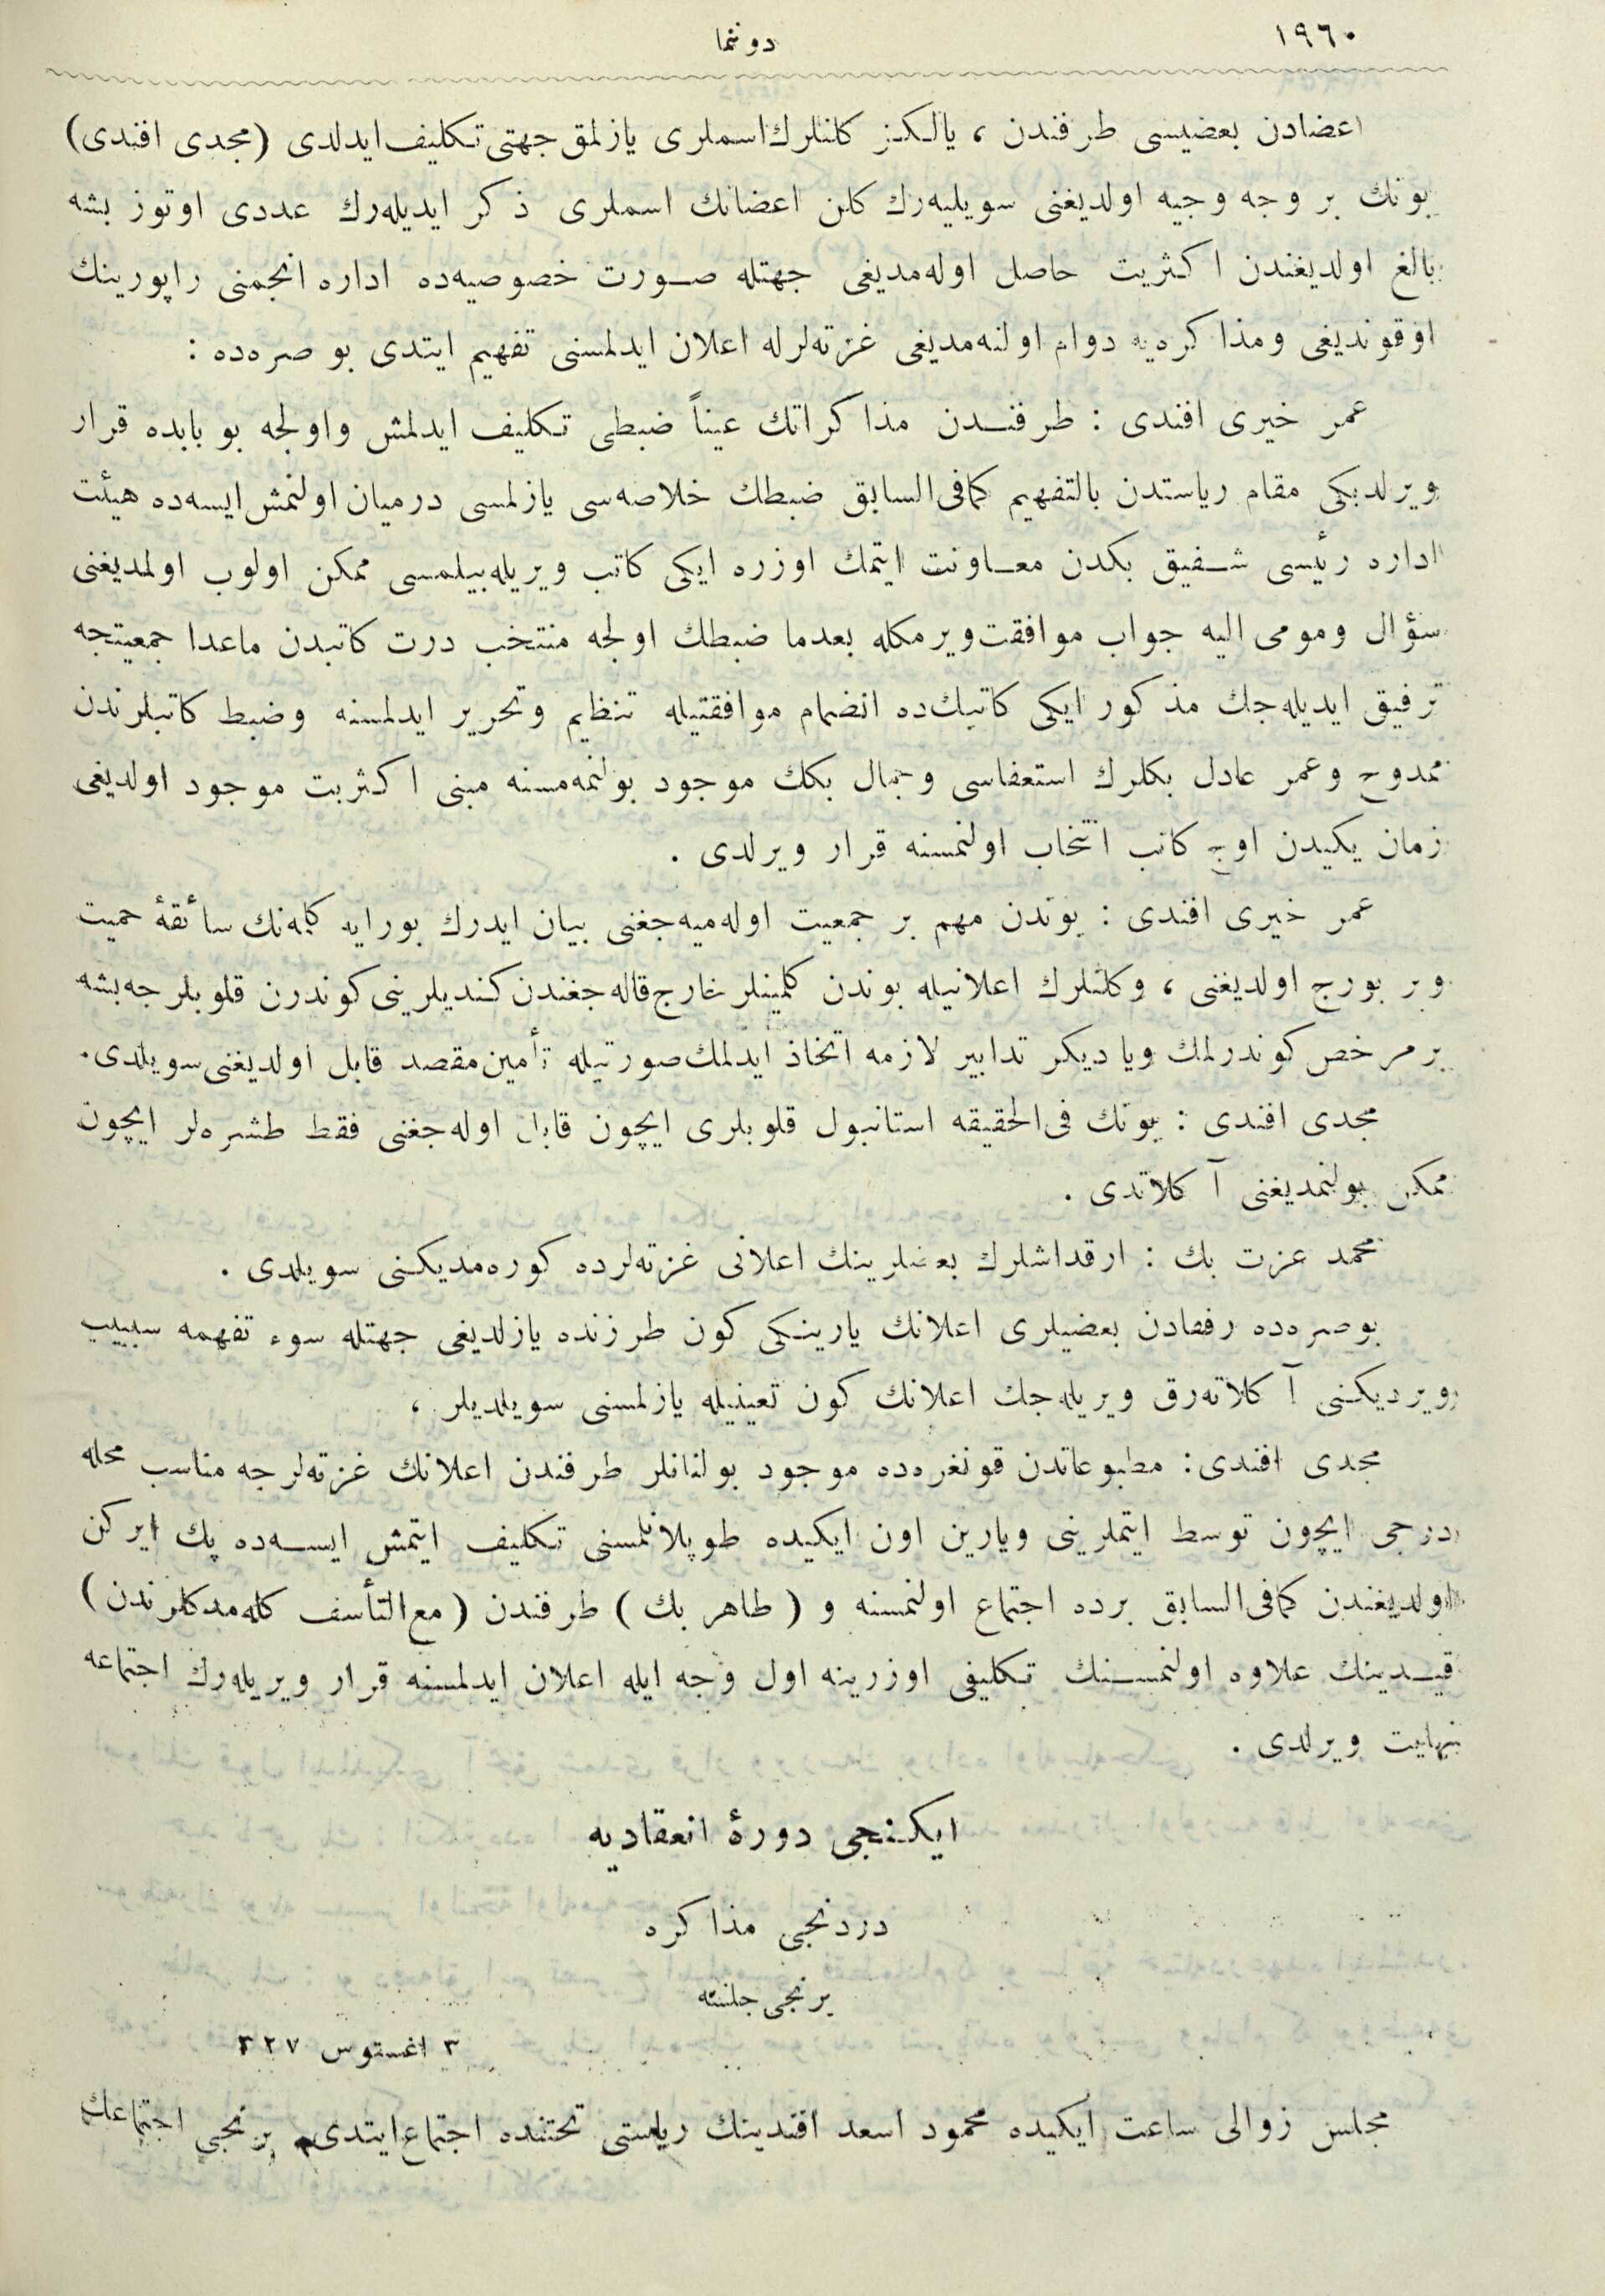 ١٩٦٠
دونما
اعضادن بعضیسی طرفندن ، یالکز کلنلرك اسملری یازلمق جهتی تکلیف ایدلدی (مجدی افندی)
بونك بر وجه وجیه اولدیغنی سویلیه‌رك کلن اعضانك اسملری ذکر ایدیله‌رك عددی اوتوز بشه
بالغ اولدیغندن اکثریت حاصل اوله‌مدیغی جهتله صورت خصوصیه‌ده اداره انجمنی راپورینك
اوقوندیغی ومذاکره‌یه دوام اولنه‌مدیغی غزته‌لرله اعلان ایدلمسنی تفهیم ایتدی بو صره‌ده :
عمر خیری افندی : طرفندن مذاکراتك عیناً ضبطی تکلیف ایدلمش واولجه بو بابده قرار
ویرلدیکی مقام ریاستدن بالتفهیم کمافی‌السابق ضبطك خلاصه‌سی یازلمسی درمیان اولنمش ایسه‌ده هیئت
اداره رئیسی شفیق بکدن معاونت ایتمك اوزره ایکی کاتب ویریله‌بیلمسی ممکن اولوب اولمدیغنی
سؤال ومومی الیه جواب موافقت ویرمکله بعدما ضبطك اولجه منتخب درت کاتبدن ماعدا جمعیتجه
ترفیق ایدیله‌جك مذکور ایکی کاتبك‌ده انضمام موافقتیله تنظیم وتحریر ایدلمسنه وضبط کاتبلرندن
ممدوح وعمر عادل بکلرك استعفاسی وجمال بکك موجود بولنمه‌مسنه مبنی اکثریت موجود اولدیغی
زمان یکیدن اوچ کاتب انتخاب اولنمسنه قرار ویرلدی .
عمر خیری افندی : بوندن مهم بر جمعیت اوله‌میه‌جغنی بیان ایدرك بورایه کلمه‌نك سائقهٔ حمیت
وبر بورج اولدیغنی ، وکلنلرك اعلانیله بوندن کلمینلر خارج قاله‌جغندن کندیلرینی کوندرن قلوبلرجه بشه
بر مرخص کوندرلمك ویا دیکر تدابیر لازمه اتخاذ ایدلمك صورتیله تأمین مقصد قابل اولدیغنی سویلدی.
مجدی افندی : بونك فی‌الحقیقه استانبول قلوبلری ایچون قابل اوله‌جغنی فقط طشره‌لر ایچون
ممکن بولنمدیغنی آکلاتدی .
محمد عزت بك : ارقداشلرك بعضلرینك اعلانی غزته‌لرده کوره‌مدیکنی سویلدی .
بوصره‌ده رفقادن بعضیلری اعلانك یارینکی کون طرزنده یازلدیغی جهتله سوء تفهمه سببیت
ویردیکنی آکلاته‌رق ویریله‌جك اعلانك کون تعیینیله یازلمسنی سویلدیلر ،
مجدی افندی : مطبوعاتدن قونغره‌ده موجود بولنانلر طرفندن اعلانك غزته‌لرجه مناسب محله
درجی ایچون توسط ایتملرینی ویارین اون ایکیده طوپلانلمسنی تکلیف ایتمش ایسه‌ده پك ایرکن
اولدیغندن کمافی‌السابق برده اجتماع اولنمسنه و ( طاهر بك ) طرفندن ( مع‌التأسف کله‌مدکلرندن )
قیدینك علاوه اولنمسنك تکلیفی اوزرینه اول وجه ایله اعلان ایدلمسنه قرار ویریله‌رك اجتماعه
نهایت ویرلدی .
ایکنجی دورهٔ انعقادیه
دردنجی مذاکره
برنجی جلسه
٣ اغستوس ٣٢٧
مجلس زوالی ساعت ایکیده محمود اسعد افندینك ریاستی تحتنده اجتماع ایتدی. برنجی اجتماعك